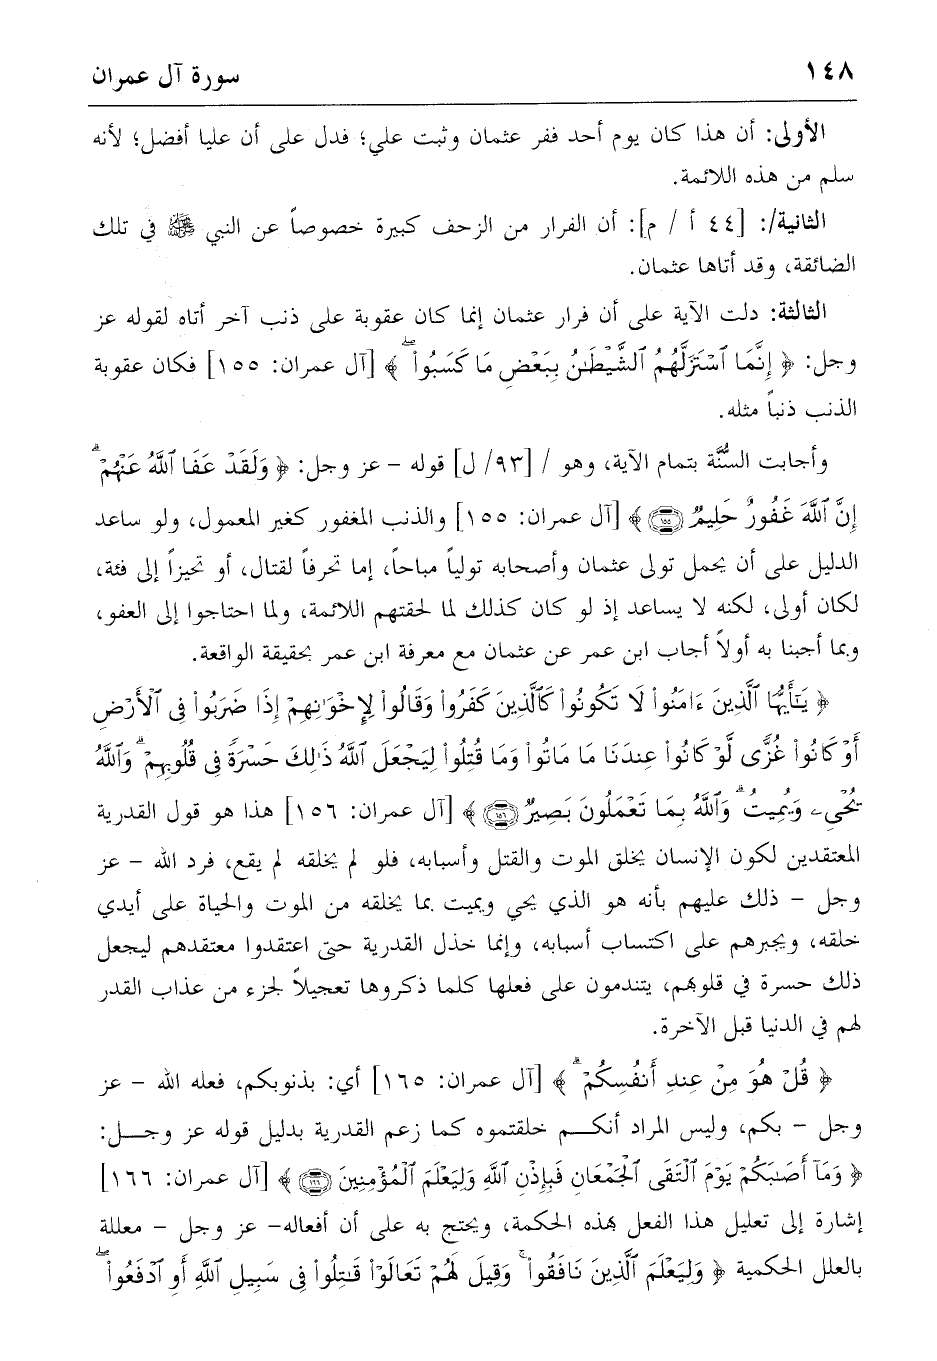 ١٤٨ سورة آل عمران
الأولى: أن هذا كان يوم أحد ففر عثمان وثبت علي؛ فدل على أن عليا أفضل؛ لأنه
سلم من هذه اللائمة.
الثانية/: [٤٤ أ / م]: أن الفرار من الزحف كبيرة خصوصاً عن النبي ﷺ في تلك
الضائقة، وقد أتاها عثمان.
الثالثة: دلت الآية على أن فرار عثمان إنما كان عقوبة على ذنب آخر أتاه لقوله عز
وجل: ﴿ إِنَّمَا ٱسْتَزَلَّهُمُ ٱلشَّيْطَٰنُ بِبَعْضِ مَا كَسَبُوا۟ۖ ﴾ [آل عمران: ١٥٥] فكان عقوبة
الذنب ذنباً مثله.
وأجابت السُّنَّة بتمام الآية، وهو / [٩٣/ ل] قوله - عز وجل: ﴿ وَلَقَدْ عَفَا ٱللَّهُ عَنْهُمْۗ
إِنَّ ٱللَّهَ غَفُورٌ حَلِيمٌ ١٥٥ ﴾ [آل عمران: ١٥٥] والذنب المغفور كغير المعمول، ولو ساعد
الدليل على أن يحمل تولى عثمان وأصحابه تولياً مباحاً، إما تحرفاً لقتال، أو تحيزاً إلى فئة،
لكان أولى، لكنه لا يساعد إذ لو كان كذلك لما لحقتهم اللائمة، ولما احتاجوا إلى العفو،
وبما أجبنا به أولاً أجاب ابن عمر عن عثمان مع معرفة ابن عمر بحقيقة الواقعة.
﴿ يَٰٓأَيُّهَا ٱلَّذِينَ ءَامَنُوا۟ لَا تَكُونُوا۟ كَٱلَّذِينَ كَفَرُوا۟ وَقَالُوا۟ لِإِخْوَٰنِهِمْ إِذَا ضَرَبُوا۟ فِى ٱلْأَرْضِ
أَوْ كَانُوا۟ غُزًّى لَّوْ كَانُوا۟ عِندَنَا مَا مَاتُوا۟ وَمَا قُتِلُوا۟ لِيَجْعَلَ ٱللَّهُ ذَٰلِكَ حَسْرَةً فِى قُلُوبِهِمْۗ وَٱللَّهُ
يُحْىِۦ وَيُمِيتُۗ وَٱللَّهُ بِمَا تَعْمَلُونَ بَصِيرٌ ١٥٦ ﴾ [آل عمران: ١٥٦] هذا هو قول القدرية
المعتقدين لكون الإنسان يخلق الموت والقتل وأسبابه، فلو لم يخلقه لم يقع، فرد الله - عز
وجل - ذلك عليهم بأنه هو الذي يحي ويميت بما يخلقه من الموت والحياة على أيدي
خلقه، ويجبرهم على اكتساب أسبابه، وإنما خذل القدرية حتى اعتقدوا معتقدهم ليجعل
ذلك حسرة في قلوبهم، يتندمون على فعلها كلما ذكروها تعجيلاً لجزء من عذاب القدر
لهم في الدنيا قبل الآخرة.
﴿ قُلْ هُوَ مِنْ عِندِ أَنفُسِكُمْۗ ﴾ [آل عمران: ١٦٥] أي: بذنوبكم، فعله الله - عز
وجل - بكم، وليس المراد أنكـم خلقتموه كما زعم القدرية بدليل قوله عز وجـل:
﴿ وَمَآ أَصَٰبَكُمْ يَوْمَ ٱلْتَقَى ٱلْجَمْعَانِ فَبِإِذْنِ ٱللَّهِ وَلِيَعْلَمَ ٱلْمُؤْمِنِينَ ١٦٦ ﴾ [آل عمران: ١٦٦]
إشارة إلى تعليل هذا الفعل بهذه الحكمة، ويحتج به على أن أفعاله- عز وجل - معللة
بالعلل الحكمية ﴿ وَلِيَعْلَمَ ٱلَّذِينَ نَافَقُوا۟ۚ وَقِيلَ لَهُمْ تَعَالَوْا۟ قَٰتِلُوا۟ فِى سَبِيلِ ٱللَّهِ أَوِ ٱدْفَعُوا۟ۖ